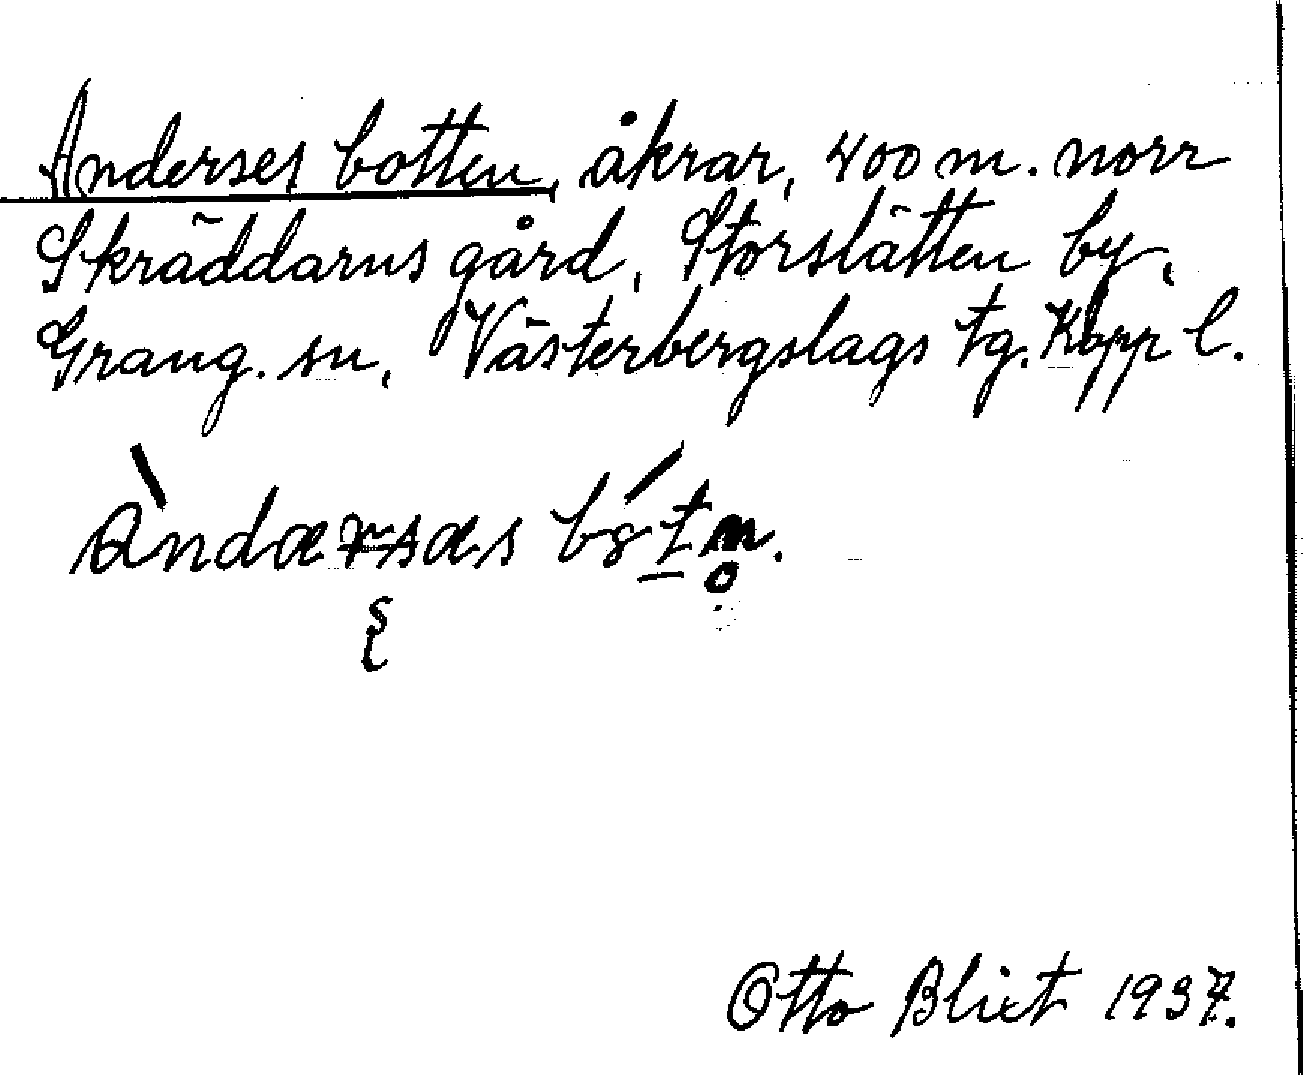 Anderses botten, åkrar, 400 m. norr
Skräddarns gård, Storslätten by,
Grang. sn, Västerbergslags tg. Kopp l.
Òndærsæs
Otto Blixt 1937.